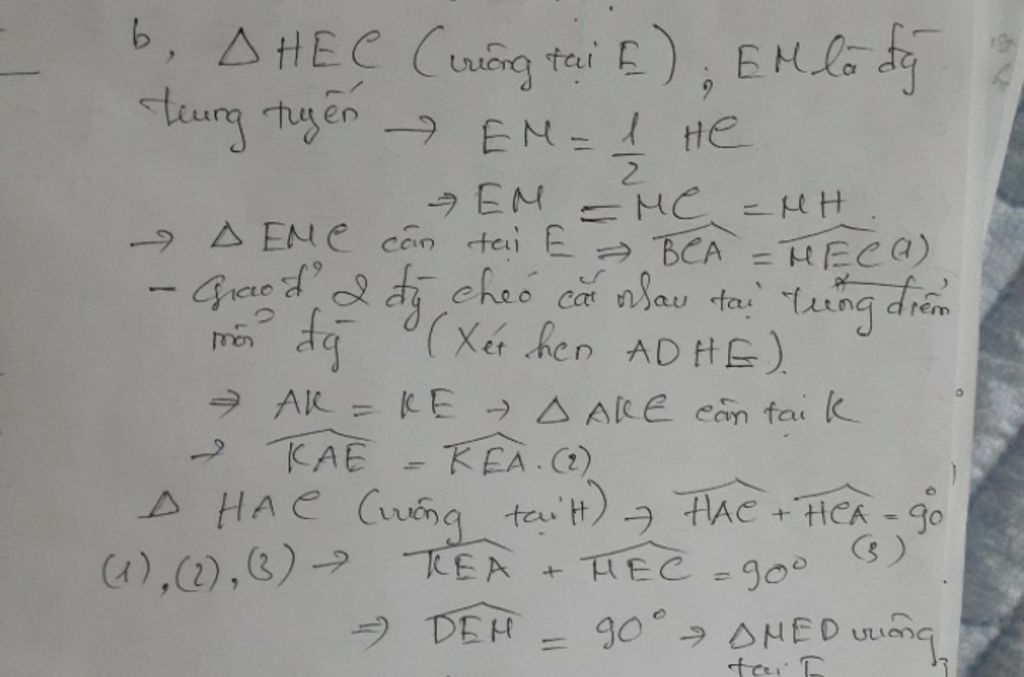 b, Δ HEC (vuông tại E) ; EM là đg̅
trung tuyến → EM = 1/2 HC
→ EM = MC = MH.
→ Δ EMC cân tại E ⇒ BCA = MEC (1)
- Giao đ' 2 đg̅ chéo cắt nhau tại trung điểm
mỗi đg̅ (Xét hcn ADHE).
⇒ AK = KE → Δ AKE cân tại K
→ KAE = KEA. (2)
Δ HAC (vuông tại H) → HAC + HCA = 90° (3)
(1), (2), (3) → KEA + MEC = 90°
⇒ DEM = 90° → Δ MED vuông
tại E